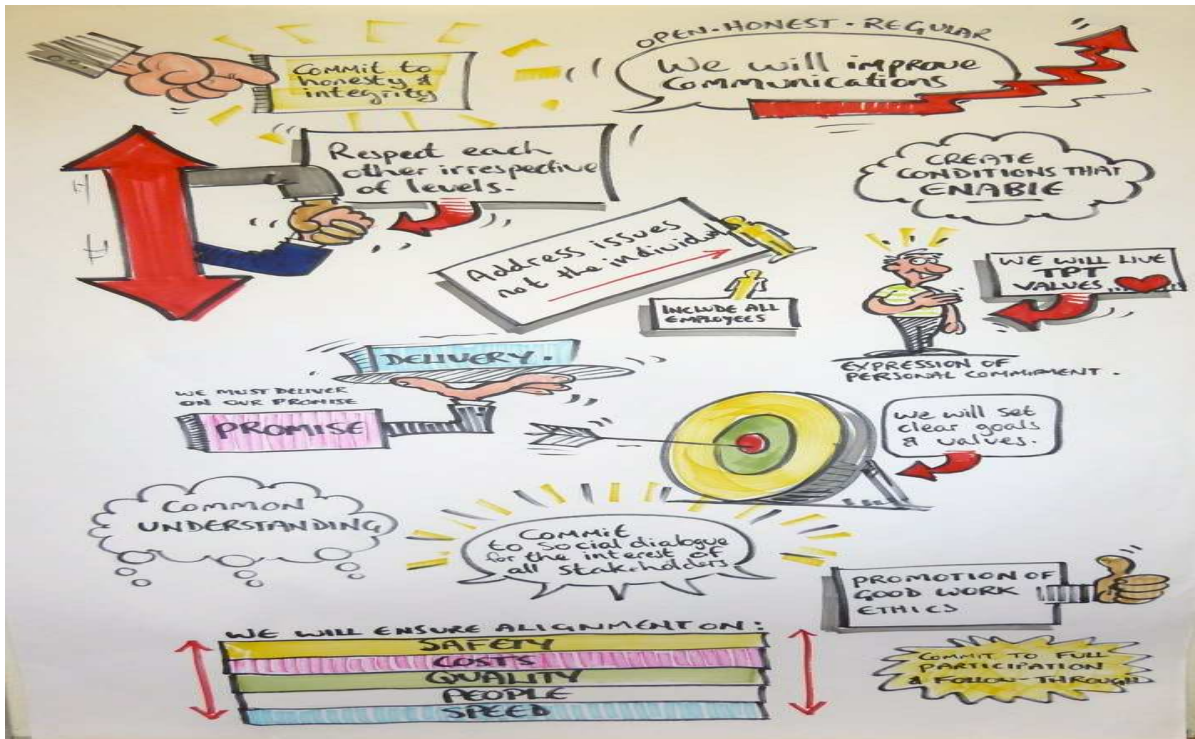 COMMIT to
honesty &
integrity
OPEN-HONEST-REGULAR
We will improve
Communications
Respect each
other irrespective
of levels.
CREATE
CONDITIONS THAT
ENABLE
Address issues
not the individual
INCLUDE ALL
EMPLOYEES
WE WILL LIVE
TPT
VALUES.......
EXPRESSION OF
PERSONAL COMMITMENT.
DELIVERY.
WE MUST DELIVER
ON OUR PROMISE
PROMISE
We will set
clear goals
& values.
COMMON
UNDERSTANDING
COMMit
to Social dialogue
for the interest of
all Stakeholders
PROMOTION OF
GOOD WORK
ETHICS
WE WILL ENSURE ALIGNMENT ON:
SAFETY
COSTS
QUALITY
PEOPLE
SPEED
COMMIT TO FULL
PARTICIPATION
& FOLLOW-THROUGH